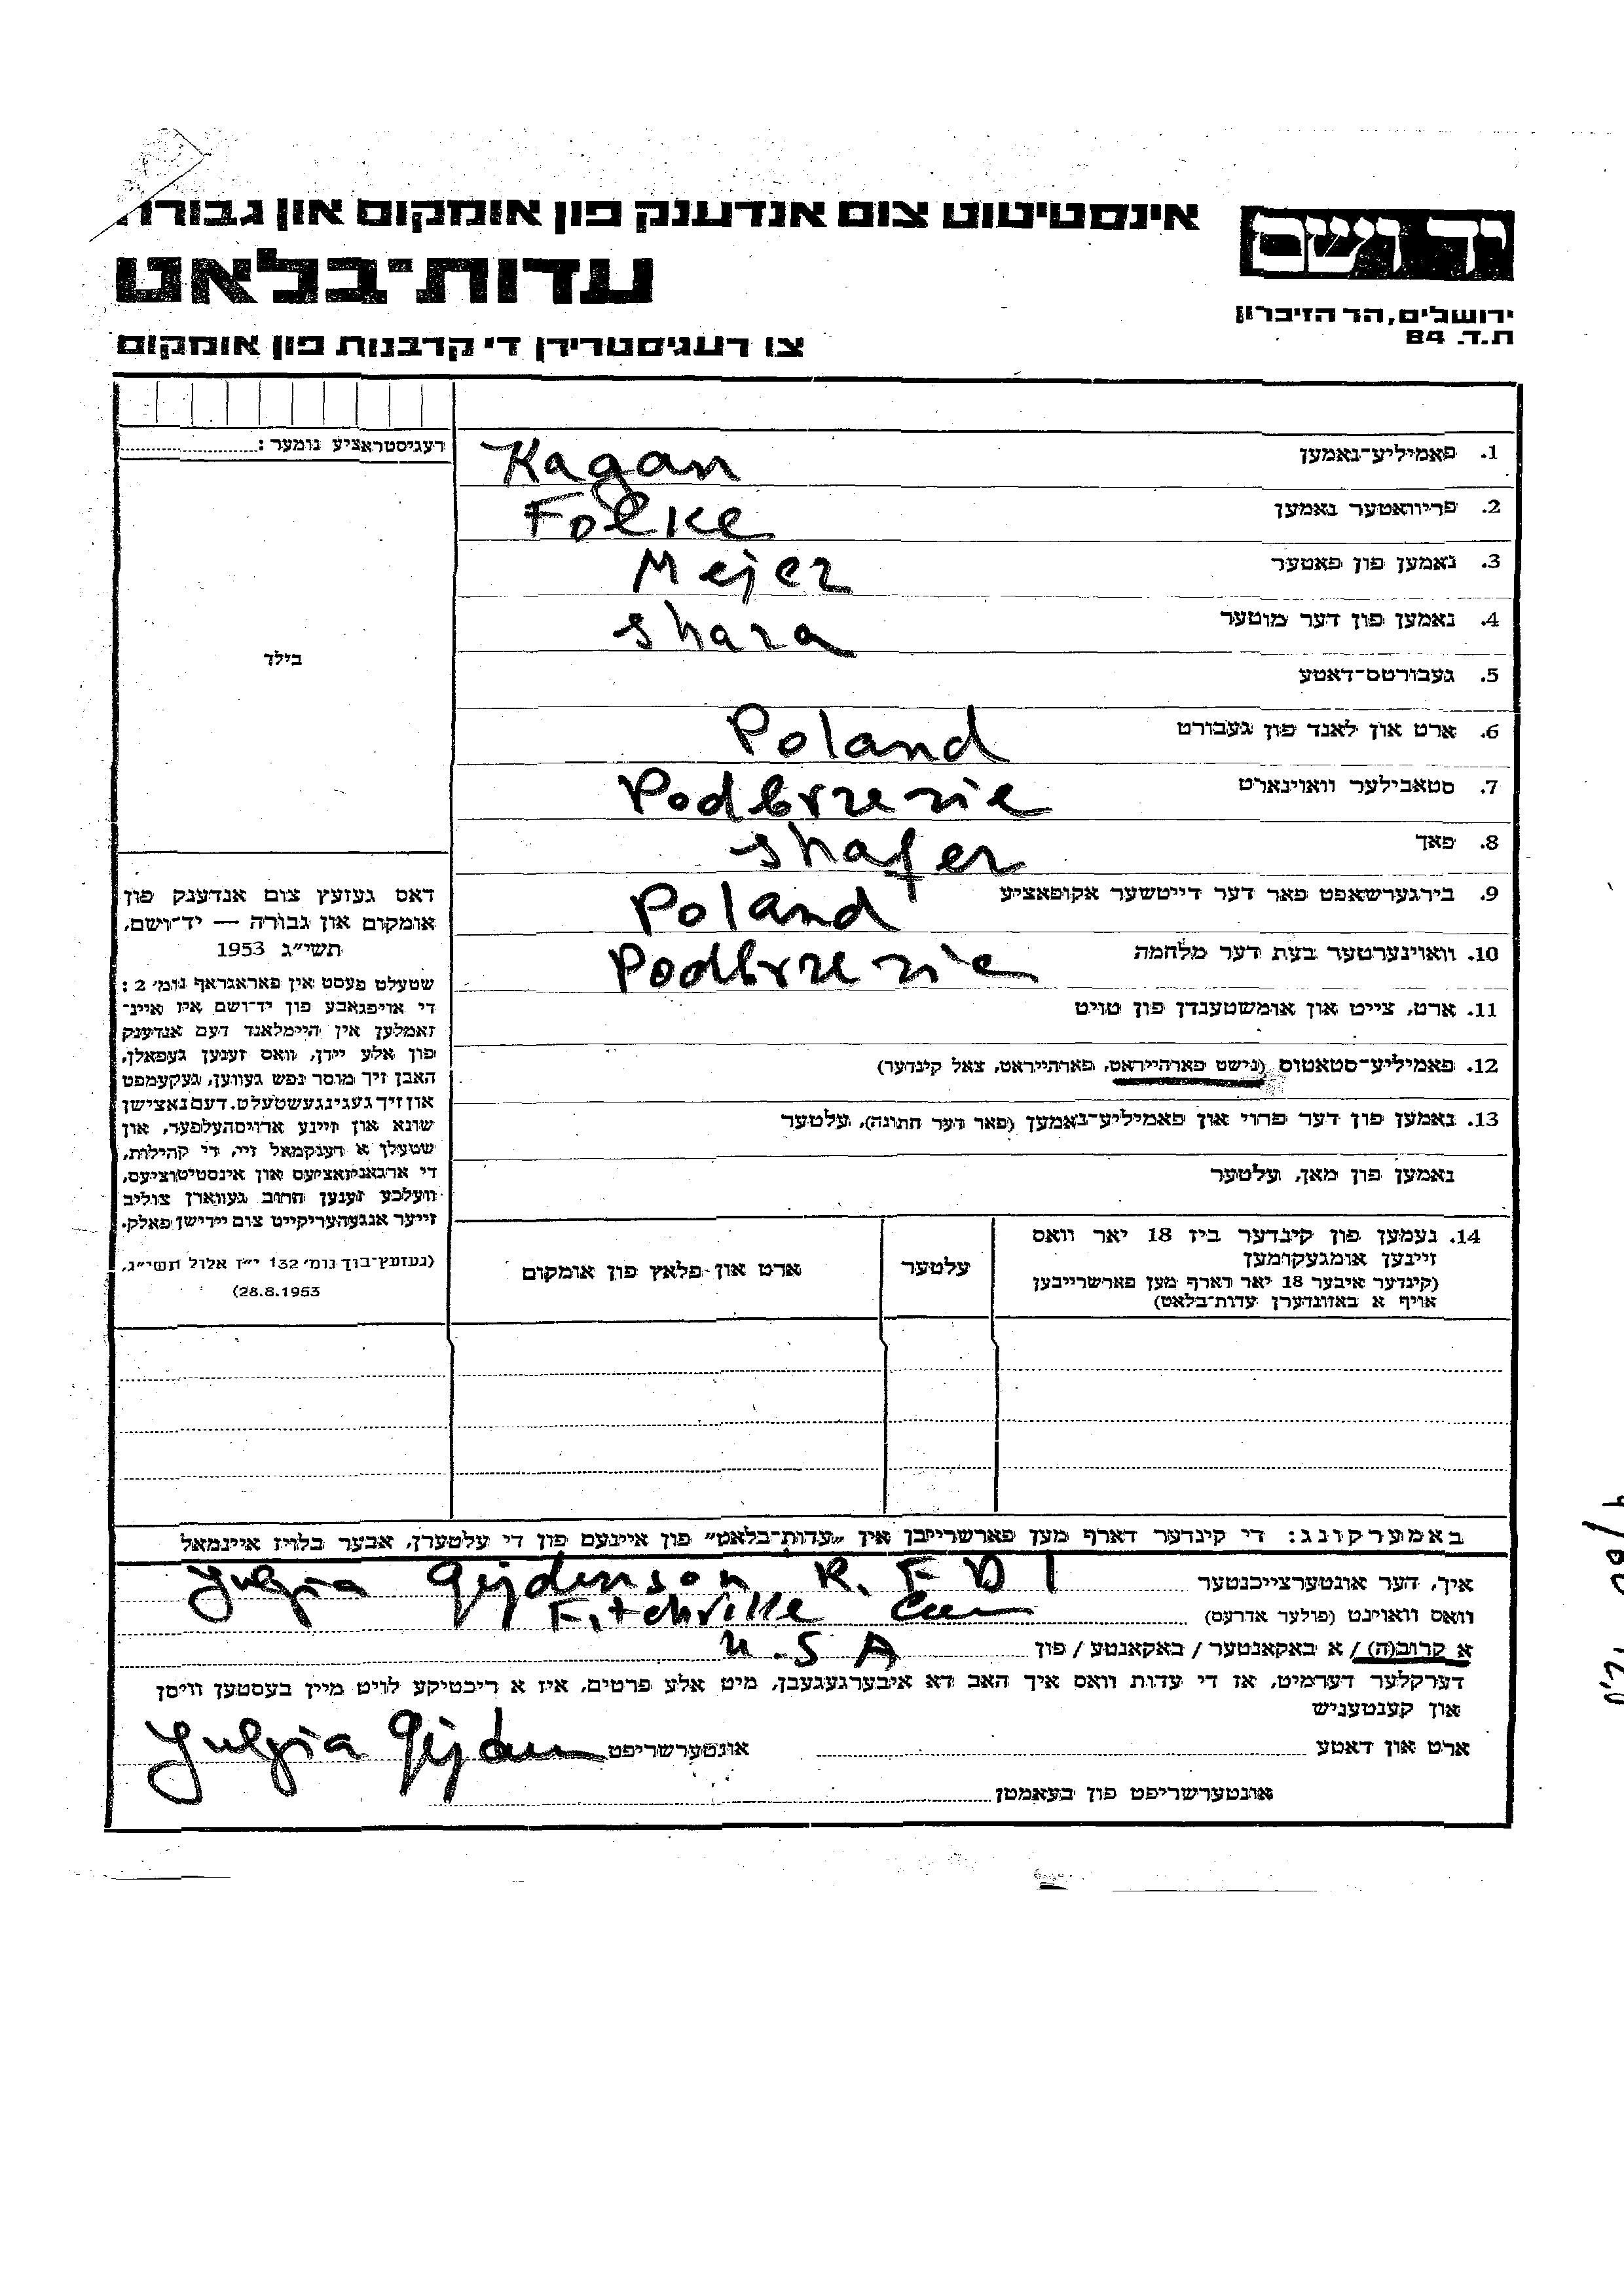 אינסטיטוט צום אנדענק פון אומקום און גבורה
יד ושם
עדות-בלאט
ירושלים, הר הזיכרון
ת.ד. 84
צו רעגיסטרירן די קרבנות פון אומקום
רעגיסטראציע נומער:
1. פאמיליע-נאמען Kagan
2. פריוואטער נאמען Folke
3. נאמען פון פאטער Mejer
4. נאמען פון דער מוטער shara
5. געבורטס-דאטע
6. ארט און לאנד פון געבורט Poland
7. סטאבילער וואוינארט Podbrzezie
8. פאך shafer
9. בירגערשאפט פאר דער דייטשער אקופאציע Poland
10. וואוינערטער בעת דער מלחמה Podbrzezie
11. ארט, צייט און אומשטענדן פון טויט
12. פאמיליע-סטאטוס (נישט פארהייראט, פארהייראט, צאל קינדער)
13. נאמען פון דער פרוי און פאמיליע-נאמען (פאר דער חתונה), עלטער
נאמען פון מאן, עלטער
בילד
דאס געזעץ צום אנדענק פון
אומקום און גבורה — יד-ושם,
תשי"ג 1953
שטעלט פעסט אין פאראגראף נומ' 2:
די אויפגאבע פון יד-ושם איז איינ-
זאמלען אין היימלאנד דעם אנדענק
פון אלע יידן, וואס זענען געפאלן,
האבן זיך מוסר נפש געווען, געקעמפט
און זיך געגינגעשטעלט. דעם נאצישן
שונא און זיינע ארויסהעלפער, און
שטעלן א דענקמאל זיי, די קהילות,
די ארגאניזאציעס און אינסטיטוציעס,
וועלכע זענען חרוב געווארן צוליב
זייער אנגעהעריקייט צום יידישן פאלק.
(געזעץ-בוך נומ' 132 י"ז אלול תשי"ג,
28.8.1953)
14. נעמען פון קינדער ביז 18 יאר וואס
זיינען אומגעקומען
(קינדער איבער 18 יאר דארף מען פארשרייבן
אויף א באזונדערן עדות-בלאט)
עלטער
ארט און פלאץ פון אומקום
באמערקונג: די קינדער דארף מען פארשרייבן אין „עדות-בלאט" פון איינעם פון די עלטערן, אבער בלויז איינמאל
איך, דער אונטערצייכנטער Julzia Gejdenson R.F D 1
וואס וואוינט (פולער אדרעס) Fitchville Con
א קרוב(ה) / א באקאנטער / באקאנטע / פון U.S A
דערקלער דערמיט, אז די עדות וואס איך האב דא איבערגעגעבן, מיט אלע פרטים, איז א ריכטיקע לויט מיין בעסטען וויסן
און קענטעניש
ארט און דאטע אונטערשריפט
אונטערשריפט פון בעאמטן